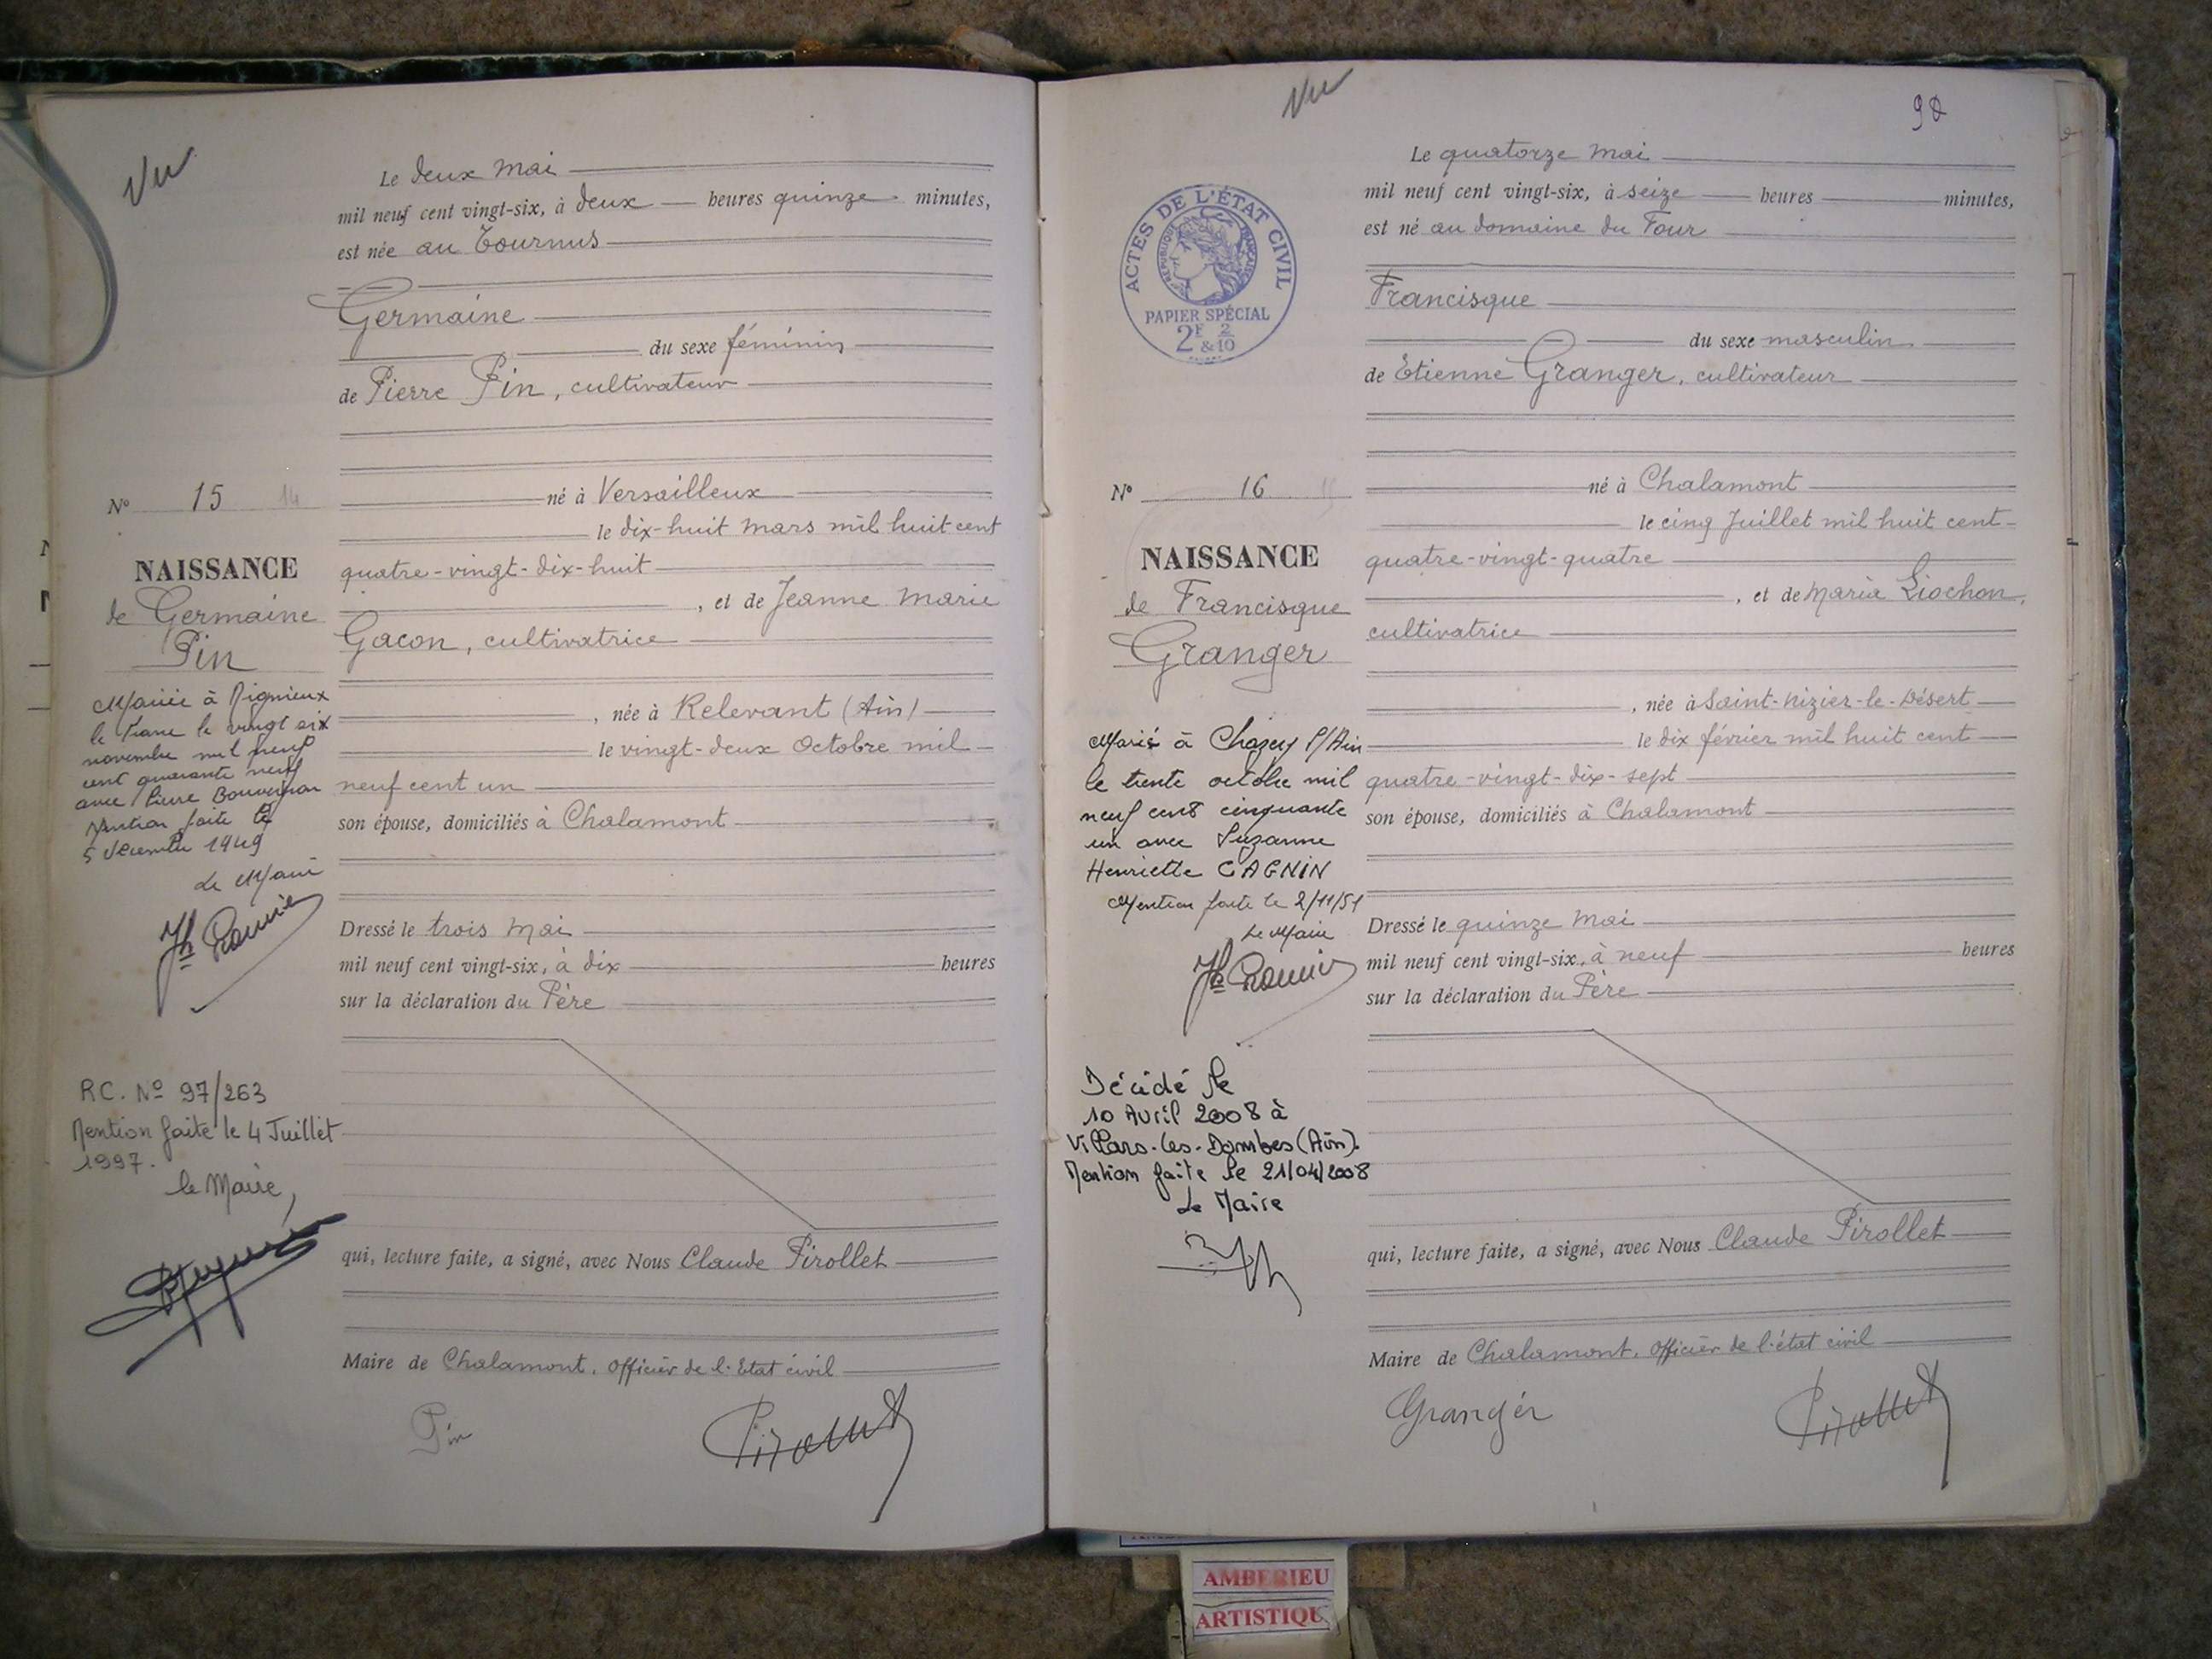 Vu
Le deux Mai
mil neuf cent vingt-six, à deux heures quinze minutes,
est née au Tournus
Germaine
du sexe féminin
de Pierre Pin, cultivateur
N° 15 14
né à Versailleux
le dix-huit Mars mil huit cent
quatre-vingt-dix-huit
NAISSANCE
de Germaine
Pin
, et de Jeanne Marie
Gacon, cultivatrice
, née à Relevant (Ain)
le vingt-deux Octobre mil
neuf cent un
son épouse, domiciliés à Chalamont
Mariée à Rignieux
le Franc le vingt six
novembre mil neuf
cent quarante neuf
avec Pierre
Mention faite le
5 décembre 1949
Le Maire
Dressé le trois Mai
mil neuf cent vingt-six, à dix heures
sur la déclaration du Père
RC. N° 97/263
Mention faite le 4 Juillet
1997.
le Maire,
qui, lecture faite, a signé, avec Nous Claude Pirollet
Maire de Chalamont, Officier de l'Etat civil
Pin Pirollet
Vu
90
ACTES DE L'ÉTAT CIVIL
RÉPUBLIQUE FRANÇAISE
PAPIER SPÉCIAL
2F & 2/10
Le quatorze Mai
mil neuf cent vingt-six, à seize heures minutes,
est né au domaine du Four
Francisque
du sexe masculin
de Etienne Granger, cultivateur
N° 16 15
né à Chalamont
le cinq Juillet mil huit cent
quatre-vingt-quatre
NAISSANCE
de Francisque
Granger
, et de Maria Liochon,
cultivatrice
, née à Saint-Nizier-le-Désert
le dix février mil huit cent
quatre-vingt-dix-sept
son épouse, domiciliés à Chalamont
Marié à Chazey S/Ain
le trente octobre mil
neuf cent cinquante
un avec Suzanne
Henriette CAGNIN
Mention faite le 2/11/51
Le Maire
Dressé le quinze Mai
mil neuf cent vingt-six, à neuf heures
sur la déclaration du Père
Décédé le
10 Avril 2008 à
Villars-les-Dombes (Ain).
Mention faite le 21/04/2008
Le Maire
qui, lecture faite, a signé, avec Nous Claude Pirollet
Maire de Chalamont, Officier de l'état civil
Granger Pirollet
AMBERIEU
ARTISTIQU